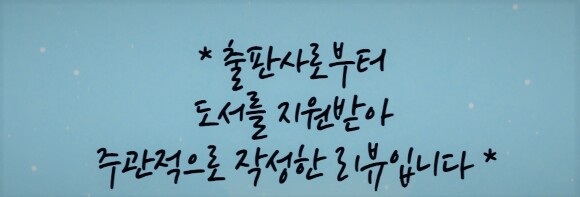 * 출판사로부터
도서를 지원받아
주관적으로 작성한 리뷰입니다 *